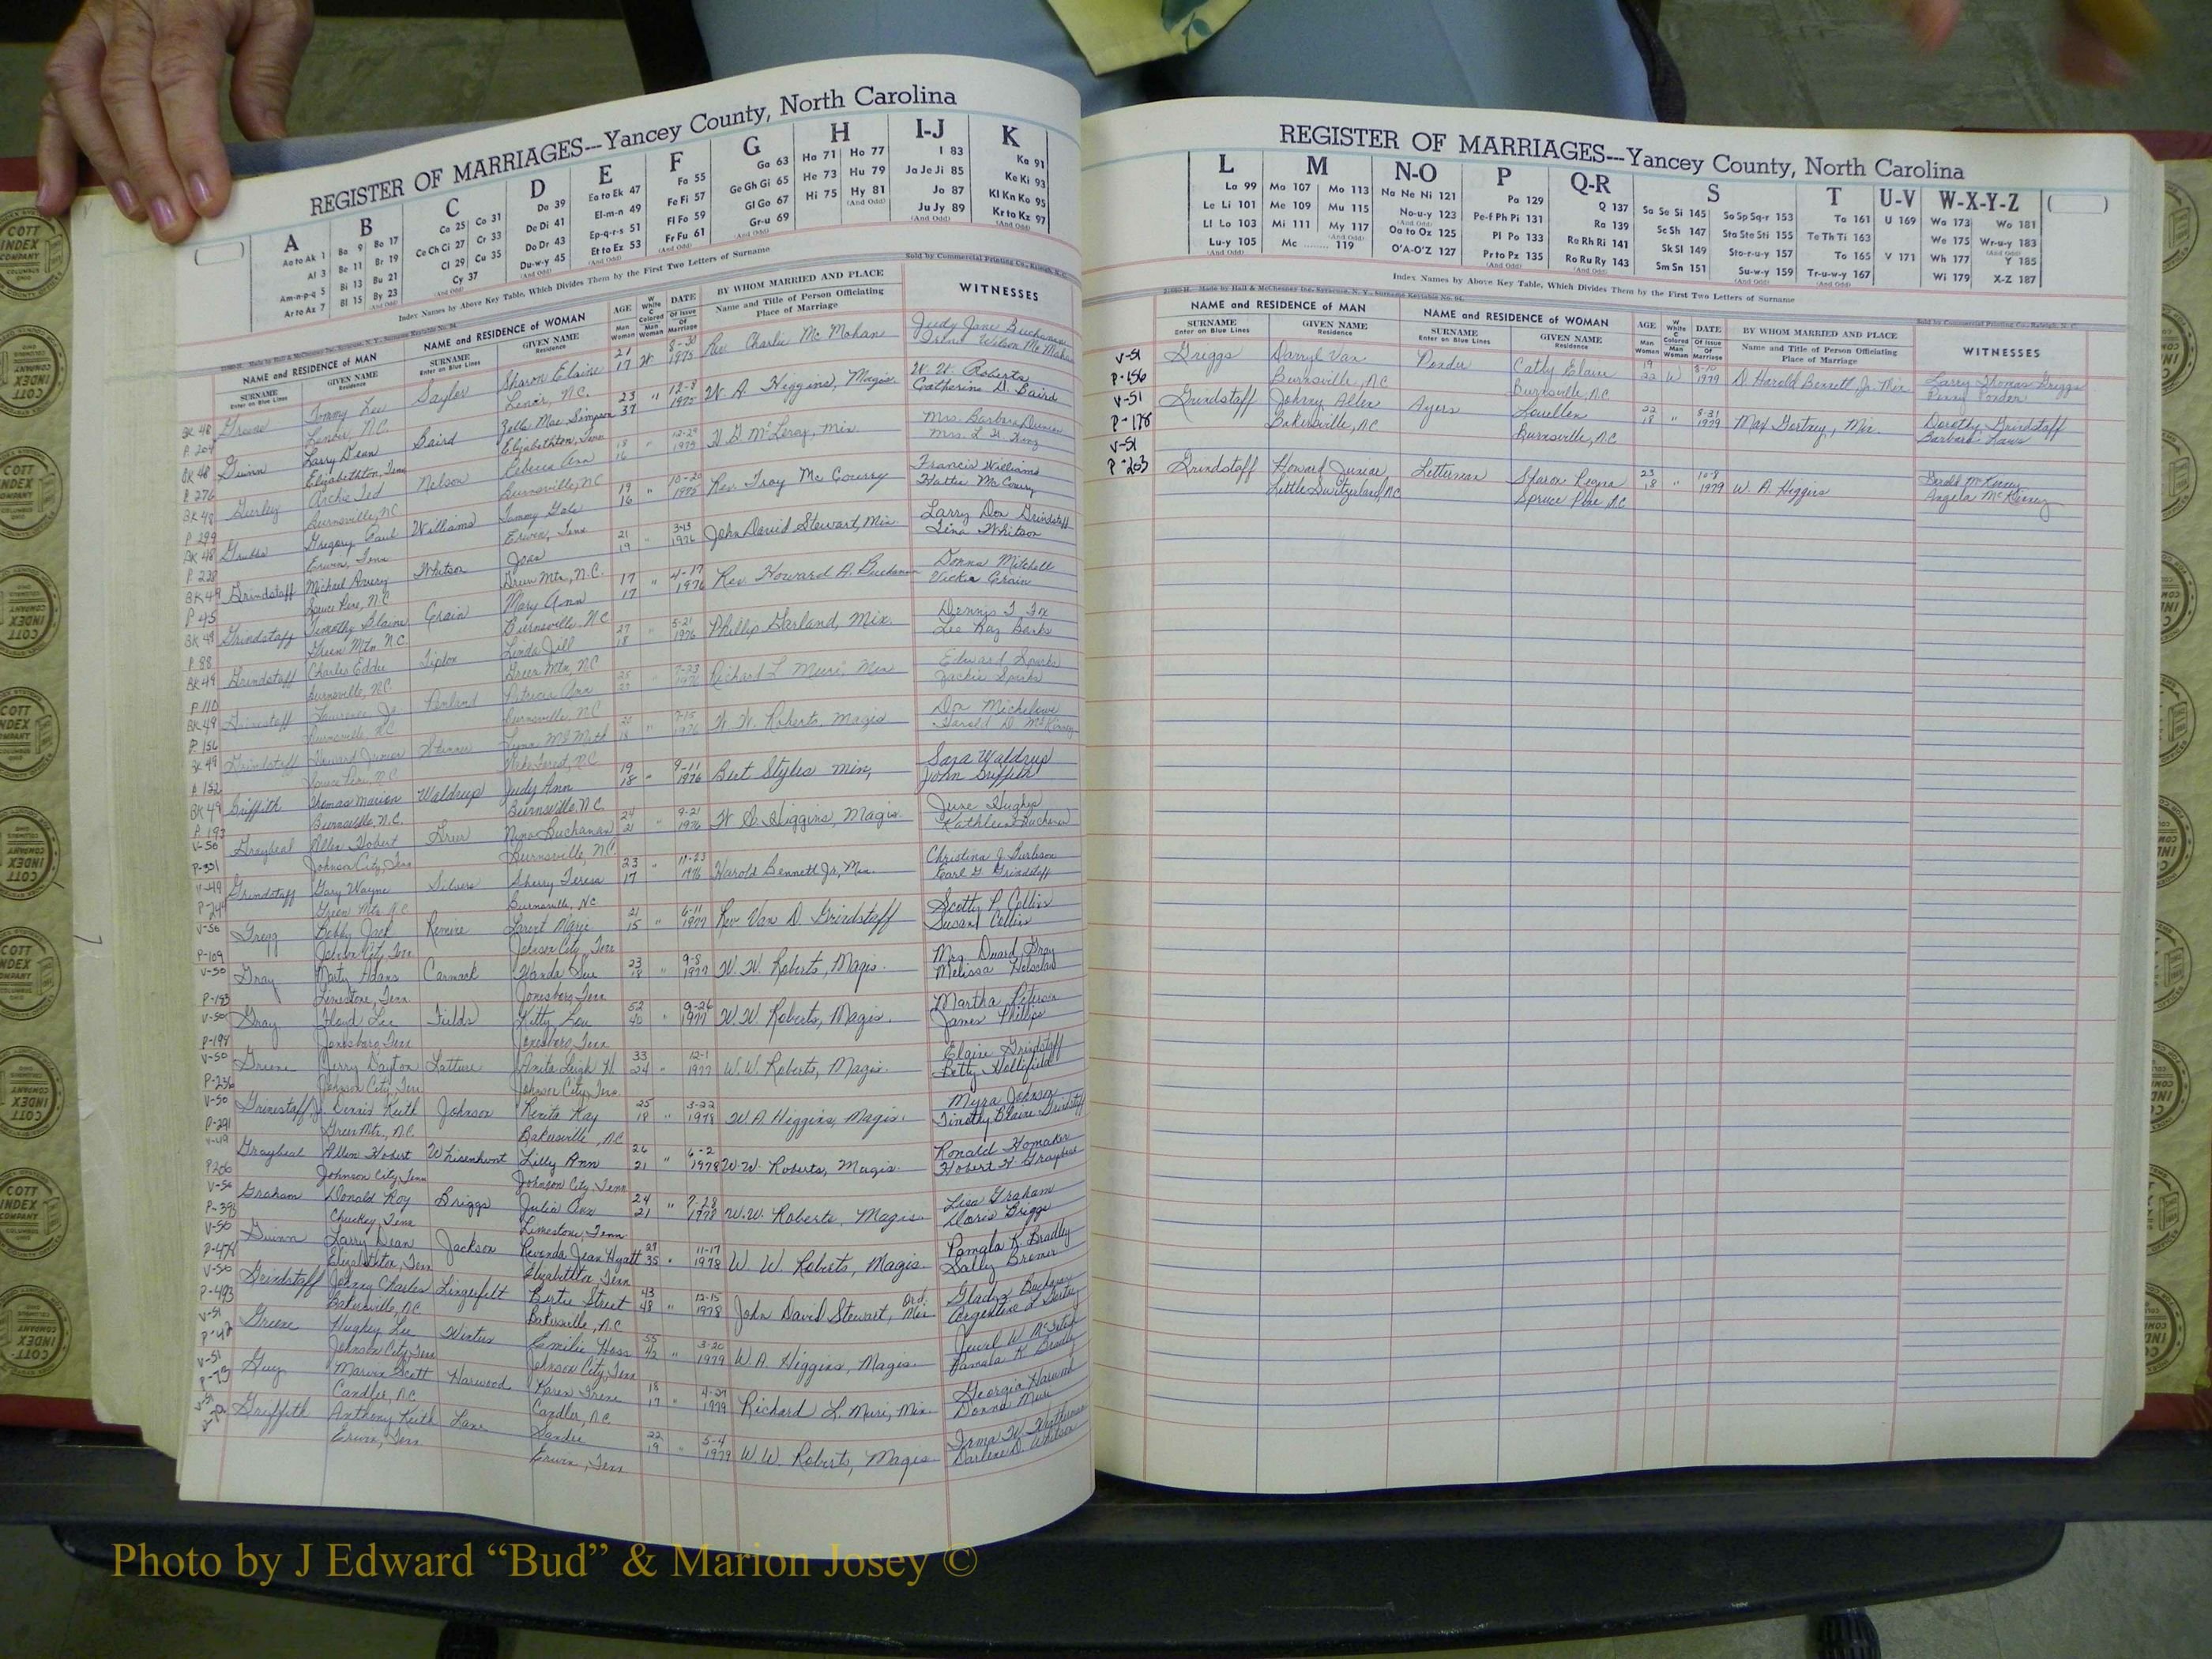 REGISTER OF MARRIAGES---Yancey County, North Carolina
A B C D E F G H I-J K
Aa to Ak 1 Ba 9 Bo 17 Ca 25 Co 31 Da 39 Ea to Ek 47 Fa 55 Ga 63 Ha 71 Ho 77 I 83 Ka 91
Al 3 Be 11 Br 19 Ce Ch Ci 27 Cr 33 De Di 41 El-m-n 49 Fe Fi 57 Ge Gh Gi 65 He 73 Hu 79 Ja Je Ji 85 Ke Ki 93
Am-n-p-q 5 Bi 13 Bu 21 Cl 29 Cu 35 Do Dr 43 Ep-q-r-s 51 Fl Fo 59 Gl Go 67 Hi 75 Hy 81 Jo 87 Kl Kn Ko 95
Ar to Az 7 Bl 15 By 23 Cy 37 Du-w-y 45 Et to Ez 53 Fr Fu 61 Gr-u 69 Ju Jy 89 Kr to Kz 97
Index Names by Above Key Table, Which Divides Them by the First Two Letters of Surname
Sold by Commercial Printing Co., Raleigh, N. C.
NAME and RESIDENCE OF MAN NAME and RESIDENCE OF WOMAN AGE DATE BY WHOM MARRIED AND PLACE WITNESSES
SURNAME GIVEN NAME SURNAME GIVEN NAME Name and Title of Person Officiating
Enter on Blue Lines Residence Enter on Blue Lines Residence Place of Marriage
BK 48 Greene Tommy Lee Saylor Sharon Elaine 21 W 8-30 Rev. Charlie McMahan Judy Jane Buchanan
P. 204 Lenoir, N.C. Lenoir, N.C. 17 1975
BK 48 Guinn Larry Dean Baird Zella Mae Simpson 23 " 12-8 W. A. Higgins, Magis. W. W. Roberts
P. 276 Elizabethton, Tenn Elizabethton, Tenn 37 1975 Catherine D. Baird
BK 48 Gurley Archie Ted Nelson Rebecca Ann 18 " 12-29
P. 299 Burnsville, NC Burnsville, NC 16 1975
BK 48 Grubbs Gregory Paul Williams Tammy Gale 19 " 10-20 Rev. Troy McCourry Francis Williams
P. 238 Erwin, Tenn Erwin, Tenn 16 1975 Hattie McCourry
BK 49 Grindstaff Michael Avery Whitson Joan 21 " 3-13 John David Stewart, Min. Larry Don Grindstaff
P 45 Spruce Pine, N.C. Green Mtn, N.C. 19 1976 Tina Whitson
BK 49 Grindstaff Timothy Blaine Crain Mary Ann 17 " 4-17 Rev. Howard A. Buchanan Donna Mitchell
P. 88 Green Mtn. N.C. Burnsville, NC 17 1976 Vickie Crain
BK 49 Grindstaff Charles Eddie Tipton Linda Jill 27 " 5-21 Phillip Garland, Min. Dennis T. Fox
P. 110 Burnsville, N.C. Green Mtn, NC 18 1976 Lee Ray Banks
BK 49 Grindstaff Lawrence Jr. Penland Patricia Ann 25 " 7-23 Richard L. Muri, Min. Edward Sparks
P. 156 Burnsville, NC Burnsville, NC 1976 Jackie Sparks
BK 49 Grindstaff Howard Junior 20 " W. W. Roberts, Magis
Spruce Pine, N.C. Wake Forest, N.C. 18 1976 Harold D. McKinney
BK 49 Griffith Thomas Marion Waldrup Judy Ann 19 " 9-11 Bert Styles Min, Sara Waldrup
P. 193 Burnsville, N.C. Burnsville, N.C. 18 1976 John Griffith
V-50 Graybeal Allen Hobert Greer Nina Buchanan 24 " 9-21 W. A. Higgins, Magis. June Hughes
P-331 Johnson City, Tenn Burnsville, NC 21 1976 Kathleen Buchanan
V-49 Grindstaff Gary Wayne Silvers Sherry Teresa 23 " 11-23 Harold Bennett Jr, Min. Christina J. Burleson
P-244 Green Mtn. N.C. Burnsville, NC 17 1976 Earl G. Grindstaff
V-50 Gregg Bobby Jack Laront Marie 21 " 6-11 Rev. Van D. Grindstaff Scotty P. Collins
P-109 Johnson City, Tenn Johnson City, Tenn 15 1977 Susan Collins
V-50 Gray Marty Adams Carmack Wanda Sue 23 " 9-8 W. W. Roberts, Magis.
P-183 Limestone, Tenn Jonesboro, Tenn 18 1977
V-50 Gray Floyd Lee Fields Kitty Lou 52 " 9-26 W. W. Roberts, Magis. Martha Peterson
P-198 Jonesboro, Tenn Jonesboro, Tenn 40 1977 James Phillips
V-50 Greene Jerry Dayton Lattimer Anita Leigh H. 33 12-1 W. W. Roberts, Magis. Elaine Grindstaff
P-236 Johnson City, Tenn Johnson City, Tenn 24 " 1977 Betty Hollifield
V-50 Grindstaff, Jr. Dennis Keith Johnson Renita Kay 25 3-22 W. A. Higgins, Magis. Myra Johnson
P-291 Green Mtn., N.C. Bakersville, N.C. 18 " 1978 Timothy Blaine Grindstaff
V-49 Graybeal Allen Hobert Whisenhunt Lilly Ann 26 6-2 W. W. Roberts, Magis. Ronald Homaker
P206 Johnson City, Tenn Johnson City, Tenn 21 " 1978 Hobert H. Graybeal
V-50 Graham Donald Roy Briggs Julia Ann 24 " 7-28 W. W. Roberts, Magis. Lisa Graham
P-398 Chuckey, Tenn Limestone, Tenn 21 1978 Doris Briggs
V-50 Guinn Larry Dean Jackson Revonda Jean Hyatt 29 11-17 W. W. Roberts, Magis. Pamala K. Bradley
P-478 Elizabethton, Tenn Elizabethton, Tenn 35 " 1978
V-50 Grindstaff Johnny Charles Lingerfelt Birtie Street 43 12-15 John David Stewart, Ord. Min Gladys Buchanan
P-493 Bakersville, N.C. Bakersville, N.C. 48 " 1978
V-51 Greene Hughey Lee Winters Camilie Hoss 55 3-20 W. A. Higgins, Magis.
P-42 Johnson City, Tenn Johnson City, Tenn 42 " 1979 Pamala K. Bradley
V-51 Guy Marvin Scott Harwood Karen Irene 18 4-27 Richard L. Muri, Min. Georgia Harwood
P-75 Candler, N.C. Candler, N.C. 17 " 1979 Donna Muri
V-51 Griffith Anthony Keith Lane Sandra 22 5-4 W. W. Roberts, Magis.
Erwin, Tenn Erwin, Tenn 19 " 1979 Darlene D. Whitson
REGISTER OF MARRIAGES---Yancey County, North Carolina
L M N-O P Q-R S T U-V W-X-Y-Z
La 99 Ma 107 Mo 113 Na Ne Ni 121 Pa 129 Q 137 Sa Se Si 145 So Sp Sq-r 153 Ta 161 U 169 Wa 173 Wo 181
Le Li 101 Me 109 Mu 115 No-u-y 123 Pe-f Ph Pi 131 Ra 139 Sc Sh 147 Sta Ste Sti 155 Te Th Ti 163 We 175 Wr-u-y 183
Ll Lo 103 Mi 111 My 117 Oa to Ox 125 Pl Po 133 Re Rh Ri 141 Sk Sl 149 Sto-r-u-y 157 To 165 V 171 Wh 177 Y 185
Lu-y 105 Mc 119 O'A-O'Z 127 Pr to Pz 135 Ro Ru Ry 143 Sm Sn 151 Su-w-y 159 Tr-u-w-y 167 Wi 179 X-Z 187
Index Names by Above Key Table, Which Divides Them by the First Two Letters of Surname
Made by Hall & McChesney Inc. Syracuse, N. Y., Surname Keytable No. 94.
Sold by Commercial Printing Co., Raleigh, N. C.
NAME and RESIDENCE OF MAN NAME and RESIDENCE OF WOMAN AGE DATE BY WHOM MARRIED AND PLACE WITNESSES
SURNAME GIVEN NAME SURNAME GIVEN NAME Man Woman White Colored Of Issue Of Marriage Name and Title of Person Officiating
Enter on Blue Lines Residence Enter on Blue Lines Residence Place of Marriage
V-51 Griggs Darryl Van Ponder Cathy Elaine 19 W 8-10 D. Harold Bennett, Jr. Min. Larry Thomas Griggs
P-156 Burnsville, NC Burnsville, NC 22 1979 Penny Ponder
V-51 Grindstaff Johnny Allen Ayers Louellen 22 " 8-31 Max Gortney, Min. Dorothy Grindstaff
P-178 Bakersville, NC Burnsville, NC 18 1979 Barbara Laws
V-51
P-203 Grindstaff Howard Junior Letterman Sharon Regina 23 " 10-8 W. A. Higgins
Little Switzerland, NC Spruce Pine NC 18 1979 Angela McKinney
COTT INDEX COMPANY COLUMBUS OHIO
Photo by J Edward “Bud” & Marion Josey ©